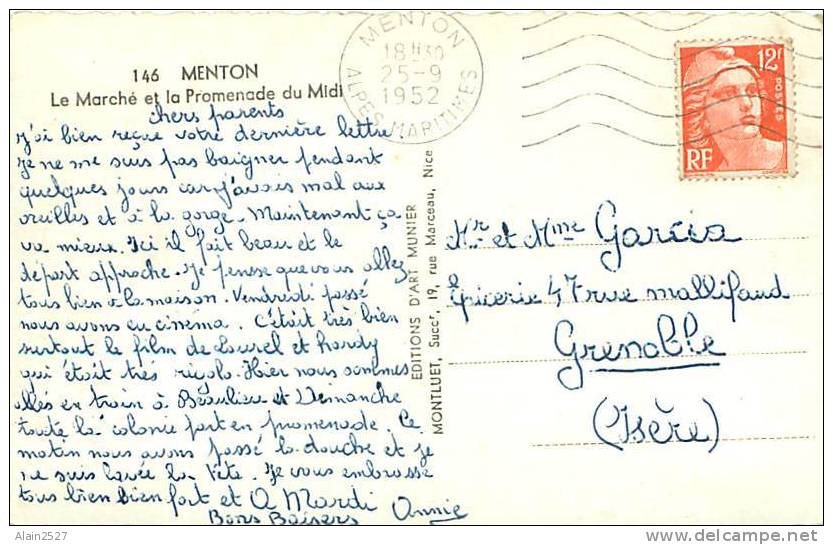 146 MENTON
Le Marché et la Promenade du Midi
MENTON
18H30
25-9
1952
ALPES MARITIMES
12F
POSTES
RF
chers parents
j'ai bien reçue votre dernière lettre
je ne me suis pas baigner pendant
quelques jours car j'avais mal aux
oreilles et à la gorge. Maintenant ça
va mieux. Ici il fait beau et le
départ approche. Je pense que vous allez
tous bien à la maison. Vendredi passé
nous avons eu cinéma. C'était très bien
surtout le film de Laurel et hardy
qui était très rigolo. Hier nous sommes
allés en train à Beaulieu et Dimanche
toute la colonie part en promenade. Ce
matin nous avons passé la douche et je
me suis lavée la tête. Je vous embrasse
tous bien bien fort et A Mardi
Bons Baisers Annie
EDITIONS D'ART MUNIER
MONTLUET, Succr, 19, rue Marceau, Nice
Mr et Mme Garcia
Epicerie 47 rue mallifaud
Grenoble
(Isère)
Alain2527
delcampe.net